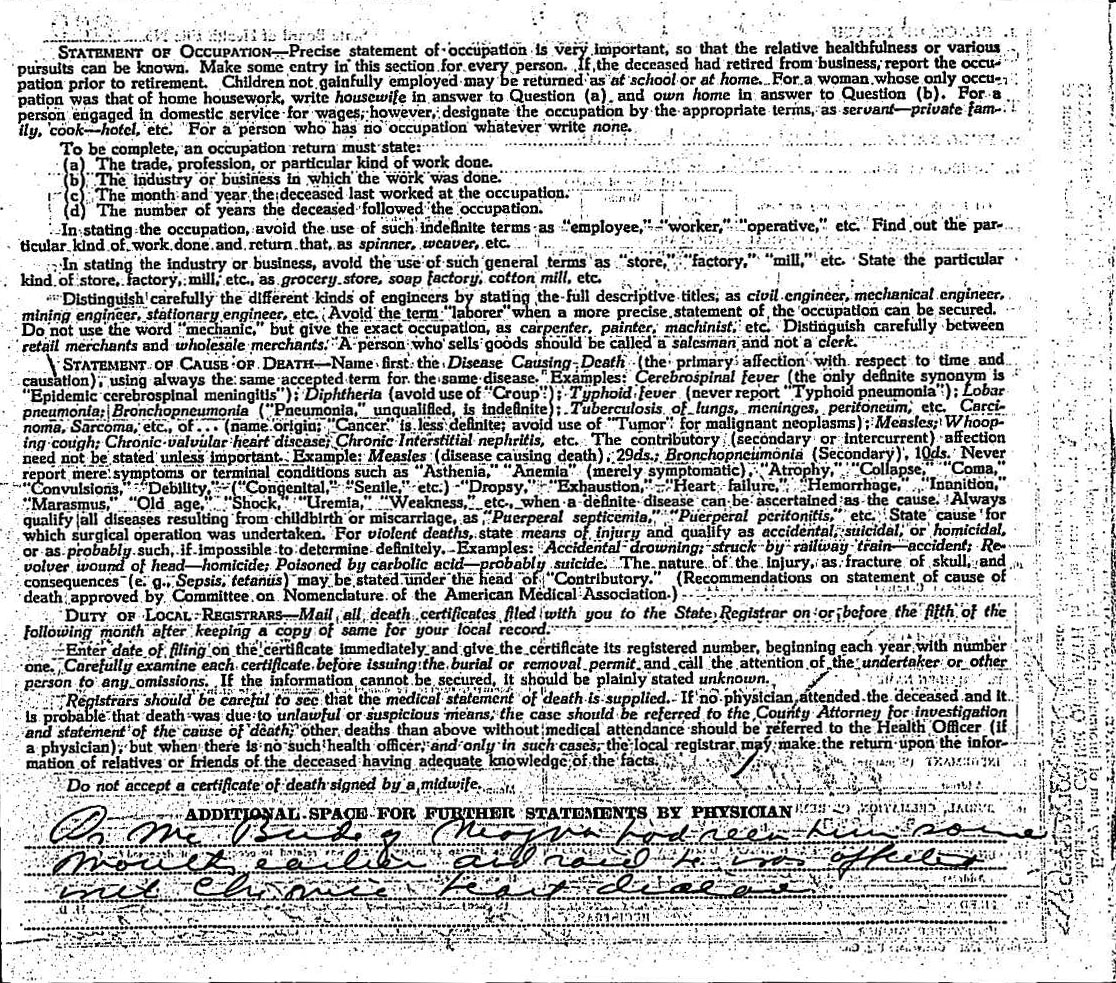 STATEMENT OF OCCUPATION—Precise statement of occupation is very important, so that the relative healthfulness or various
pursuits can be known. Make some entry in this section for every person. If the deceased had retired from business, report the occu-
pation prior to retirement. Children not gainfully employed may be returned as at school or at home. For a woman whose only occu-
pation was that of home housework, write housewife in answer to Question (a) and own home in answer to Question (b). For a
person engaged in domestic service for wages, however, designate the occupation by the appropriate terms, as servant—private fam-
ily, cook—hotel, etc. For a person who has no occupation whatever write none.
To be complete, an occupation return must state:
(a) The trade, profession, or particular kind of work done.
(b) The industry or business in which the work was done.
(c) The month and year the deceased last worked at the occupation.
(d) The number of years the deceased followed the occupation.
In stating the occupation, avoid the use of such indefinite terms as "employee," "worker," "operative," etc. Find out the par-
ticular kind of work done and return that, as spinner, weaver, etc.
In stating the industry or business, avoid the use of such general terms as "store," "factory," "mill," etc. State the particular
kind of store, factory, mill, etc., as grocery store, soap factory, cotton mill, etc.
Distinguish carefully the different kinds of engineers by stating the full descriptive titles, as civil engineer, mechanical engineer,
mining engineer, stationary engineer, etc. Avoid the term "laborer" when a more precise statement of the occupation can be secured.
Do not use the word "mechanic," but give the exact occupation, as carpenter, painter, machinist, etc. Distinguish carefully between
retail merchants and wholesale merchants. A person who sells goods should be called a salesman and not a clerk.
STATEMENT OF CAUSE OF DEATH—Name first the Disease Causing Death (the primary affection with respect to time and
causation), using always the same accepted term for the same disease. Examples: Cerebrospinal fever (the only definite synonym is
"Epidemic cerebrospinal meningitis"); Diphtheria (avoid use of "Croup"); Typhoid fever (never report "Typhoid pneumonia"); Lobar
pneumonia; Bronchopneumonia ("Pneumonia," unqualified, is indefinite); Tuberculosis of lungs, meninges, peritoneum, etc. Carci-
noma, Sarcoma, etc., of... (name origin; "Cancer" is less definite; avoid use of "Tumor" for malignant neoplasms); Measles; Whoop-
ing cough; Chronic valvular heart disease; Chronic Interstitial nephritis, etc. The contributory (secondary or intercurrent) affection
need not be stated unless important. Example: Measles (disease causing death), 29ds.; Bronchopneumonia (Secondary), 10ds. Never
report mere symptoms or terminal conditions such as "Asthenia," "Anemia" (merely symptomatic), "Atrophy," "Collapse," "Coma,"
"Convulsions," "Debility," ("Congenital," "Senile," etc.) "Dropsy," "Exhaustion," "Heart failure," "Hemorrhage," "Inanition,"
"Marasmus," "Old age," "Shock," "Uremia," "Weakness," etc., when a definite disease can be ascertained as the cause. Always
qualify all diseases resulting from childbirth or miscarriage, as Puerperal septicemia," "Puerperal peritonitis," etc. State cause for
which surgical operation was undertaken. For violent deaths, state means of injury and qualify as accidental, suicidal, or homicidal,
or as probably such, if impossible to determine definitely. Examples: Accidental drowning; struck by railway train—accident; Re-
volver wound of head—homicide; Poisoned by carbolic acid—probably suicide. The nature of the injury, as fracture of skull, and
consequences (e. g., Sepsis, tetanus) may be stated under the head of "Contributory." (Recommendations on statement of cause of
death approved by Committee on Nomenclature of the American Medical Association.)
DUTY OF LOCAL REGISTRARS—Mail all death certificates filed with you to the State Registrar on or before the fifth of the
following month after keeping a copy of same for your local record.
Enter date of filing on the certificate immediately and give the certificate its registered number, beginning each year with number
one. Carefully examine each certificate before issuing the burial or removal permit and call the attention of the undertaker or other
person to any omissions. If the information cannot be secured, it should be plainly stated unknown.
Registrars should be careful to see that the medical statement of death is supplied. If no physician attended the deceased and it
is probable that death was due to unlawful or suspicious means, the case should be referred to the County Attorney for investigation
and statement of the cause of death; other deaths than above without medical attendance should be referred to the Health Officer (if
a physician), but when there is no such health officer, and only in such cases, the local registrar may make the return upon the infor-
mation of relatives or friends of the deceased having adequate knowledge of the facts.
Do not accept a certificate of death signed by a midwife.
ADDITIONAL SPACE FOR FURTHER STATEMENTS BY PHYSICIAN
Dr Mc of had seen him some
months earlier and said he was
Chronic heart disease